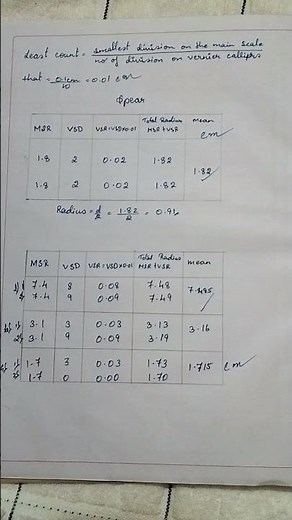 Least count = smallest division on the main scale
no of division on vernier callipers
that = 0.1cm
10
= 0.01 cm
Spear
MSR VSD VSR=VSD×0.01 Total Radius MSR+VSR Mean
cm
1.8 2 0.02 1.82
1.82
1.8 2 0.02 1.82
Radius = d/2 = 1.82/2 = 0.91
MSR VSD VSR=VSD×0.01 Total Radius MSR+VSR mean
7.4 8 0.08 7.48
7.485
7.4 9 0.09 7.49
3.1 3 0.03 3.13 3.16
3.1 9 0.09 3.19
1.7 3 0.03 1.73 1.715 cm
1.7 0 0.00 1.70